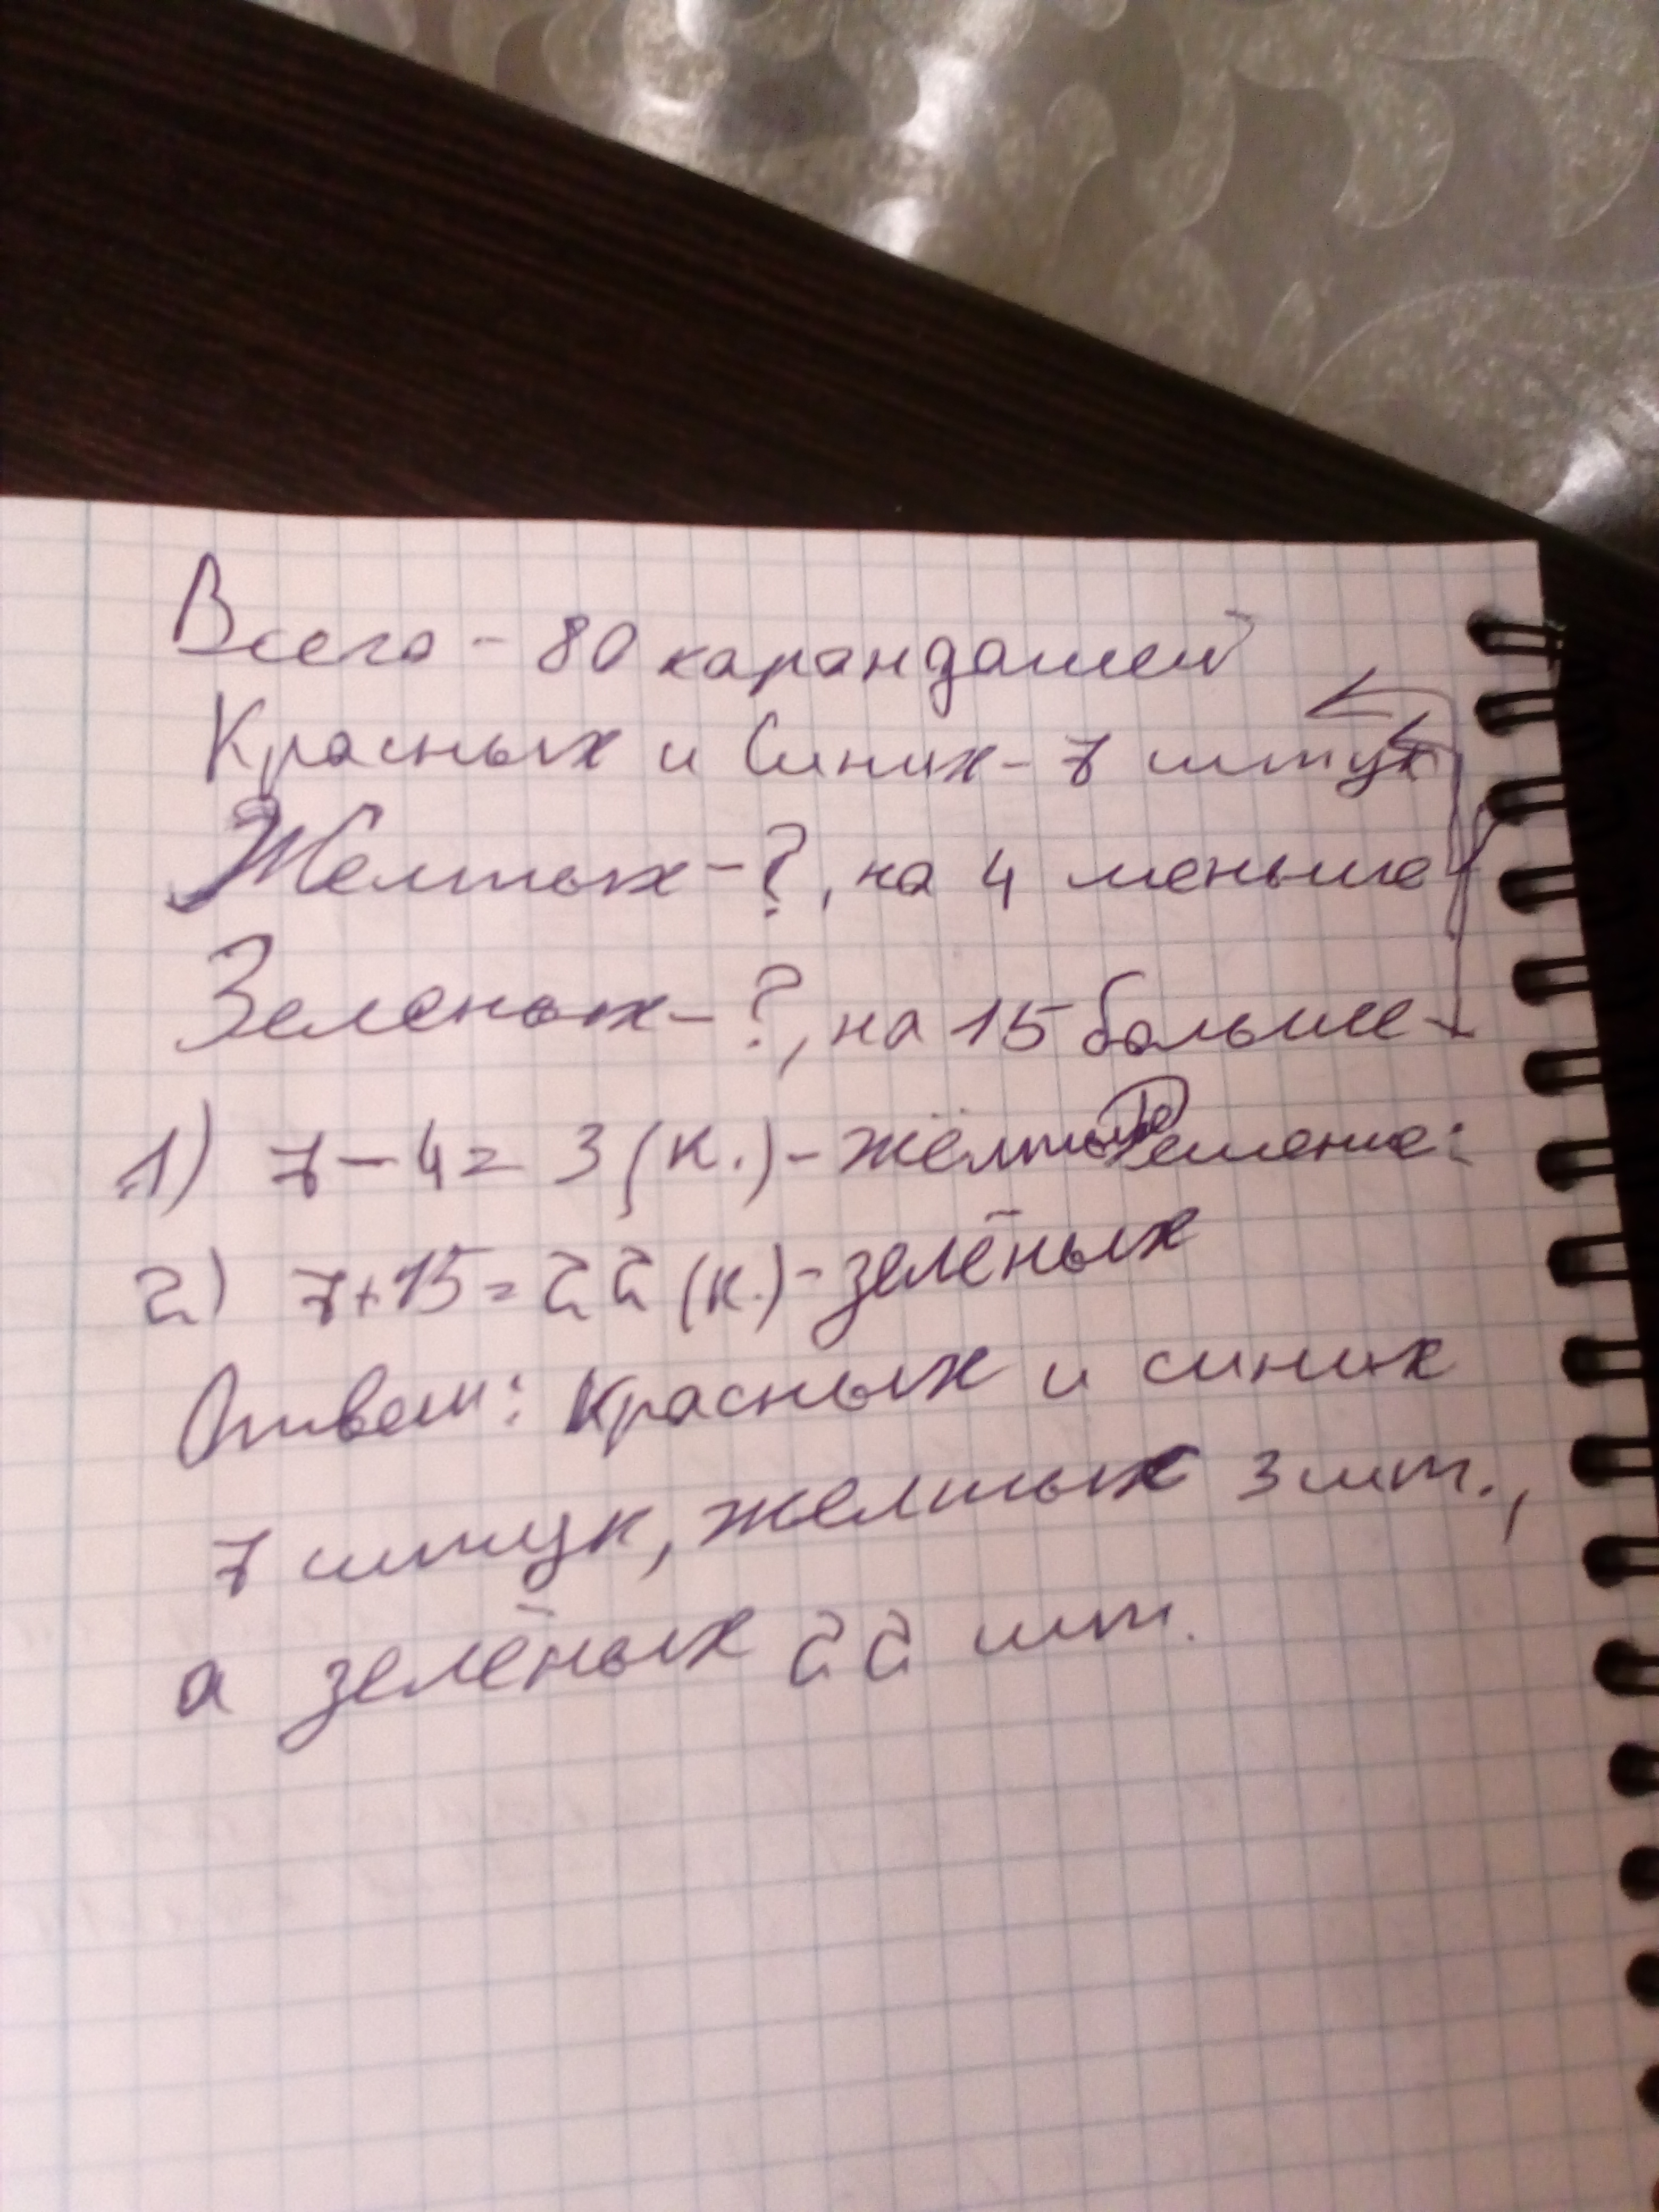 Всего - 80 карандашей
Красных и Синих - 7 штук
Желтых - ?, на 4 меньше
Зеленых - ?, на 15 больше
1) 7 - 4 = 3 (к.) - жёлтых Решение:
2) 7 + 15 = 22 (к.) - зелёных
Ответ: Красных и синих
7 штук, желтых 3 шт.,
а зелёных 22 шт.